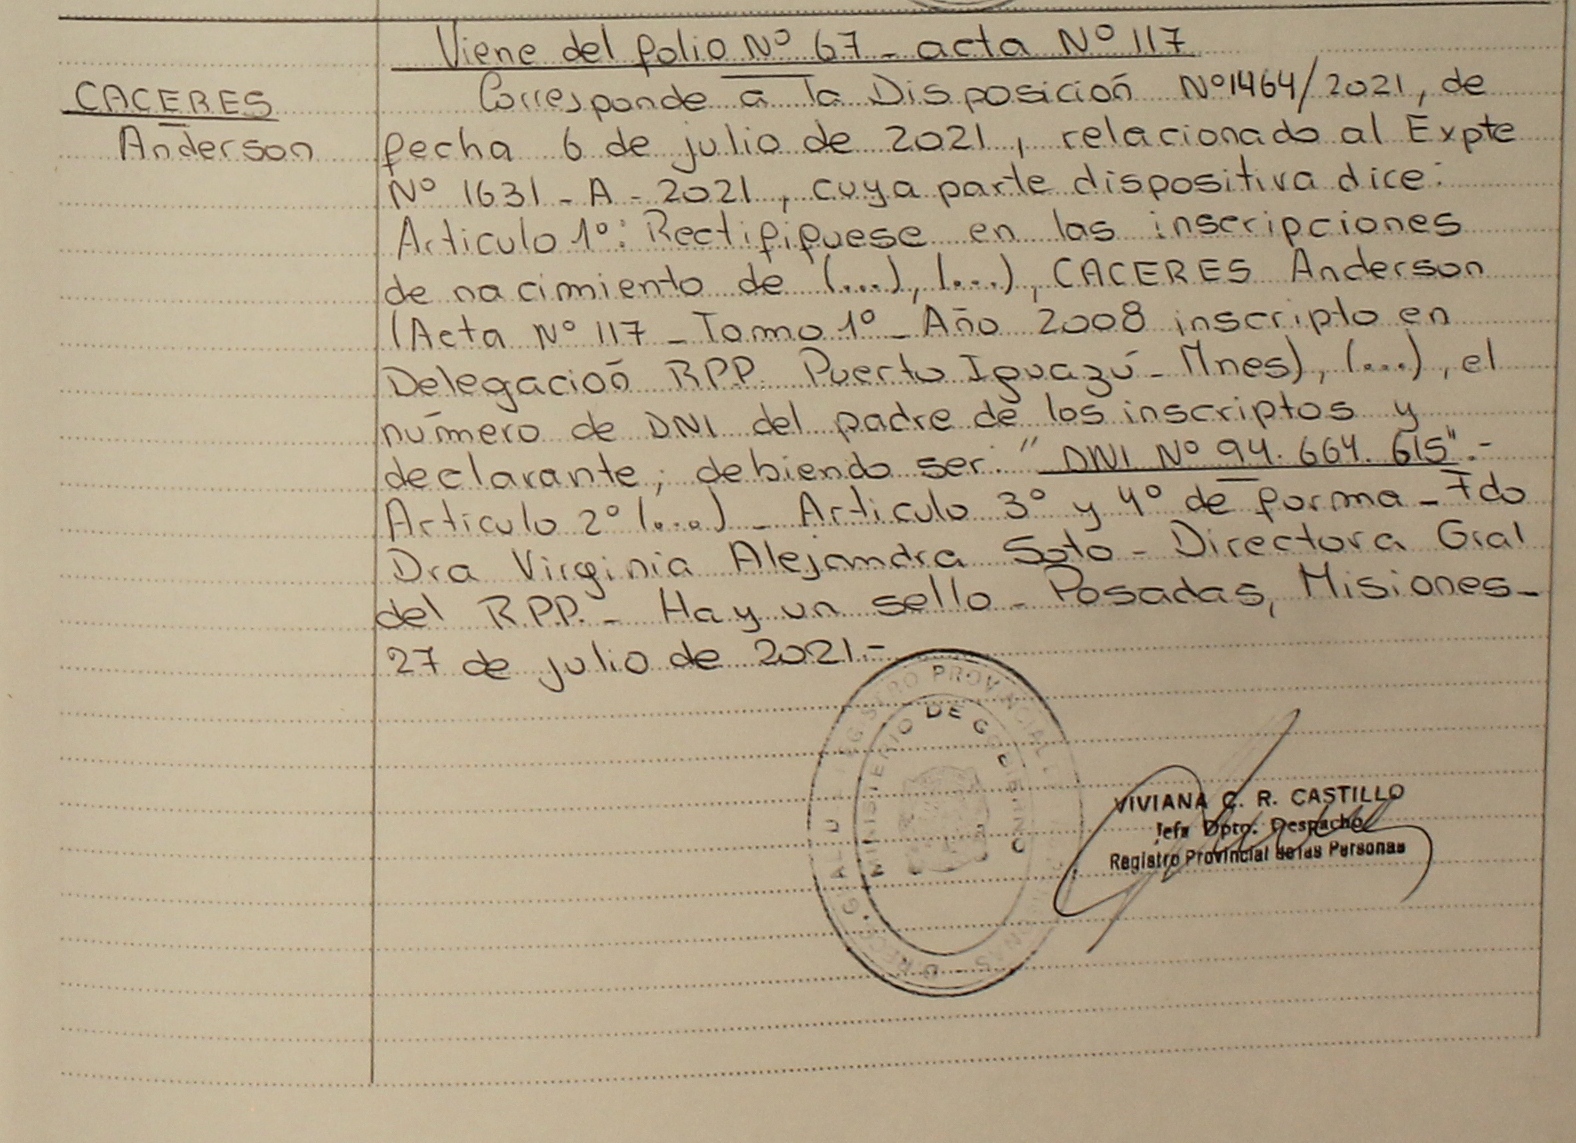 Viene del folio Nº 67 - acta Nº 117
CACERES
Anderson
Corresponde a la Disposición Nº1464/2021, de
fecha 6 de julio de 2021, relacionado al Expte
Nº 1631 - A - 2021, cuya parte dispositiva dice:
Articulo 1º: Rectifiquese en las inscripciones
de nacimiento de (...), (...), CACERES Anderson
(Acta Nº 117 - Tomo 1º - Año 2008 inscripto en
Delegación RPP. Puerto Iguazú - Mnes), (...), el
número de DNI del padre de los inscriptos y
declarante; debiendo ser: "DNI Nº 94.664.615".-
Articulo 2º (...) - Articulo 3º y 4º de forma - Fdo
Dra Virginia Alejandra Soto - Directora Gral
del R.P.P. - Hay un sello - Posadas, Misiones -
27 de julio de 2021.-
REGISTRO PROVINCIAL
MINISTERIO DE GOBIERNO
VIVIANA C. R. CASTILLO
Jefa Dpto. Despacho
Registro Provincial de las Personas